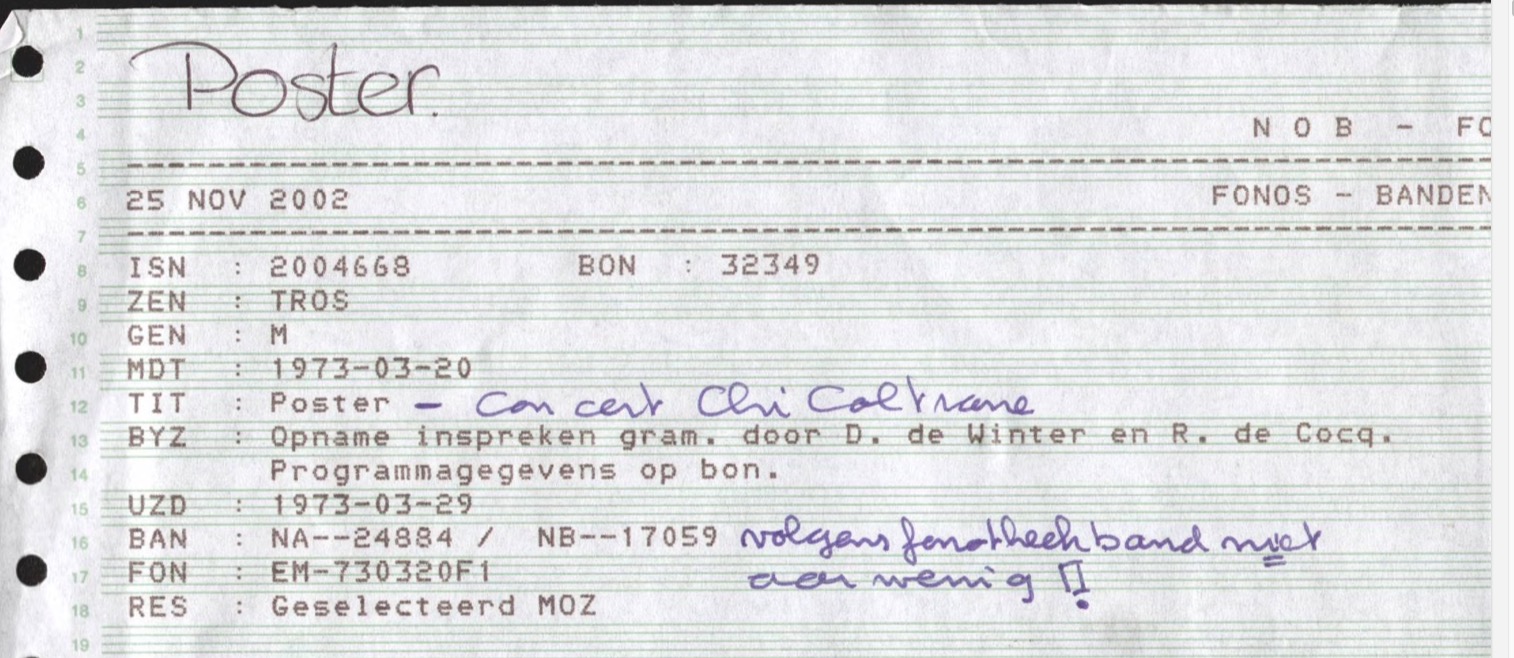 Poster.
N O B - FO
25 NOV 2002 FONOS - BANDEN
ISN : 2004668 BON : 32349
ZEN : TROS
GEN : M
MDT : 1973-03-20
TIT : Poster - Concert Chi Coltrane
BYZ : Opname inspreken gram. door D. de Winter en R. de Cocq.
Programmagegevens op bon.
UZD : 1973-03-29
BAN : NA--24884 / NB--17059 volgens fonotheek band niet
FON : EM-730320F1 aanwenig !!
RES : Geselecteerd MOZ
1
2
3
4
5
6
7
8
9
10
11
12
13
14
15
16
17
18
19